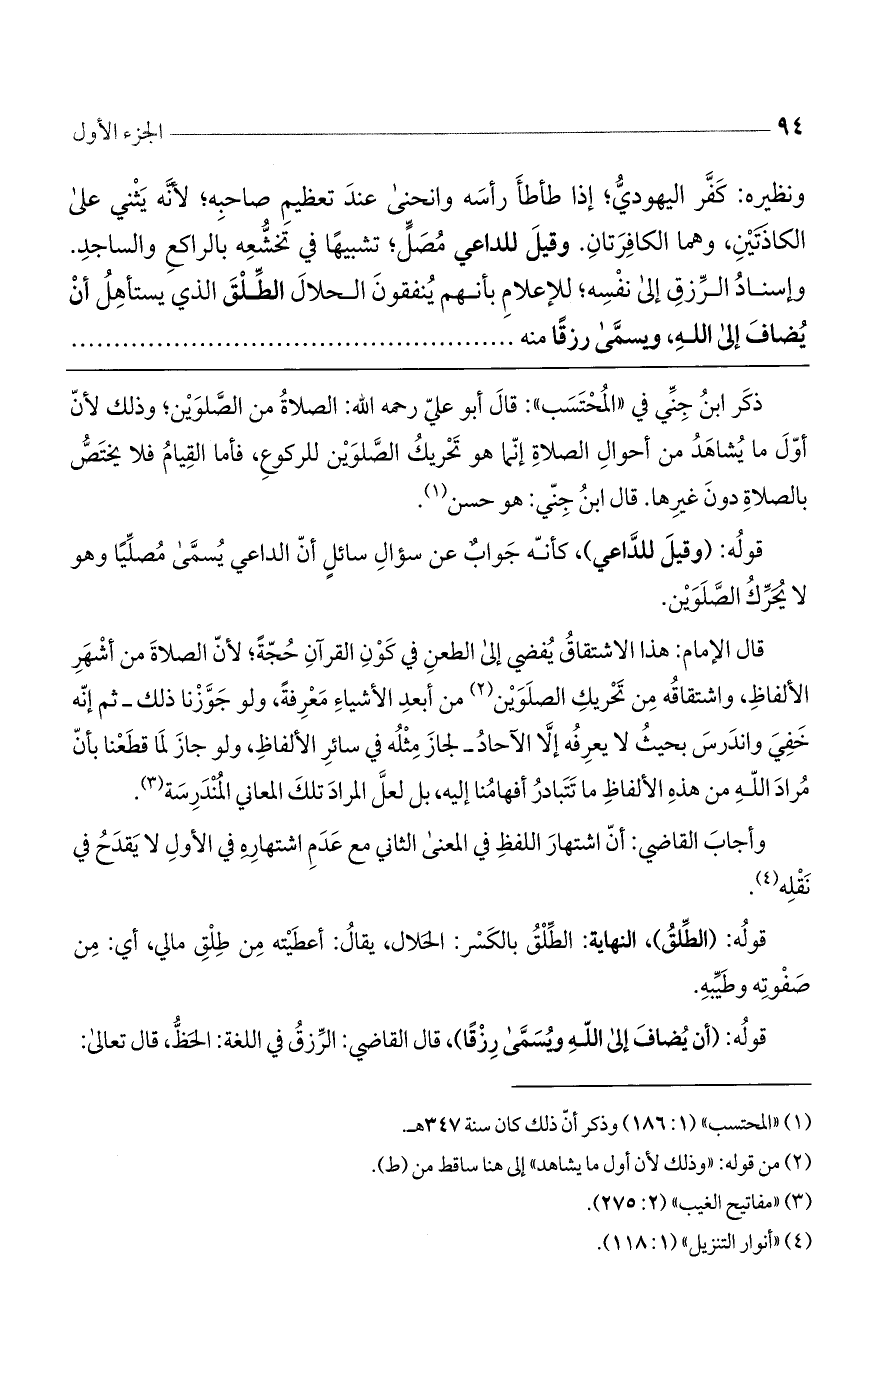 ٩٤ الجزء الأول
ونظيره: كَفَّر اليهوديُّ؛ إذا طأطأَ رأسَه وانحنىٰ عندَ تعظيمِ صاحبِه؛ لأنَّه يَثْني علىٰ
الكاذَتَيْنِ، وهما الكافِرَتانِ. وقيلَ للداعي مُصَلٍّ؛ تشبيهًا في تخشُّعِه بالراكعِ والساجدِ.
وإسنادُ الرِّزقِ إلىٰ نفْسِه؛ للإعلامِ بأنهم يُنفقونَ الحلالَ الطِّلْقَ الذي يستأهلُ أنْ
يُضافَ إلىٰ اللهِ، ويسمَّىٰ رزقًا منه ....................................................
ذكَر ابنُ جِنِّي في «المُحْتَسَب»: قالَ أبو عليّ رحمه الله: الصلاةُ من الصَّلوَيْن؛ وذلك لأنّ
أوّلَ ما يُشاهَدُ من أحوالِ الصلاةِ إنّما هو تَحْريكُ الصَّلوَيْن للركوعِ، فأما القِيامُ فلا يختَصُّ
بالصلاةِ دونَ غيرِها. قال ابنُ جِنّي: هو حسن(١).
قولُه: (وقيلَ للدَّاعي)، كأنّه جَوابٌ عن سؤالِ سائلٍ أنّ الداعي يُسمَّىٰ مُصلِّيًا وهو
لا يُحَرِّكُ الصَّلَوَيْن.
قال الإمام: هذا الاشتقاقُ يُفضي إلىٰ الطعنِ في كَوْنِ القرآنِ حُجّةً؛ لأنّ الصلاةَ من أشْهَرِ
الألفاظِ، واشتقاقُه مِن تَحْريكِ الصلَوَيْن(٢) من أبعدِ الأشياءِ مَعْرِفةً، ولو جَوَّزْنا ذلك ـ ثم إنّه
خَفِيَ واندَرسَ بحيثُ لا يعرِفُه إلَّا الآحادُ ـ لجازَ مِثْلُه في سائرِ الألفاظِ، ولو جازَ لمَا قطَعْنا بأنّ
مُرادَ اللهِ من هذهِ الألفاظِ ما تَتَبادرُ أفهامُنا إليه، بل لعلَّ المرادَ تلكَ المعاني المُنْدَرِسَة(٣).
وأجابَ القاضي: أنّ اشتهارَ اللفظِ في المعنىٰ الثاني مع عَدَمِ اشتهارِهِ في الأولِ لا يَقدَحُ في
نَقْلِه(٤).
قولُه: (الطِّلقُ)، النهاية: الطِّلْقُ بالكَسْر: الحَلال، يقالُ: أعطَيْته مِن طِلْقِ مالي، أي: مِن
صَفْوتِه وطَيِّبهِ.
قولُه: (أن يُضافَ إلىٰ اللّهِ ويُسَمَّىٰ رِزْقًا)، قال القاضي: الرِّزقُ في اللغة: الحَظُّ، قال تعالىٰ:
(١) «المحتسب» (١: ١٨٦) وذكر أنّ ذلك كان سنة ٣٤٧هـ.
(٢) من قوله: «وذلك لأن أول ما يشاهد» إلى هنا ساقط من (ط).
(٣) «مفاتيح الغيب» (٢: ٢٧٥).
(٤) «أنوار التنزيل» (١: ١١٨).